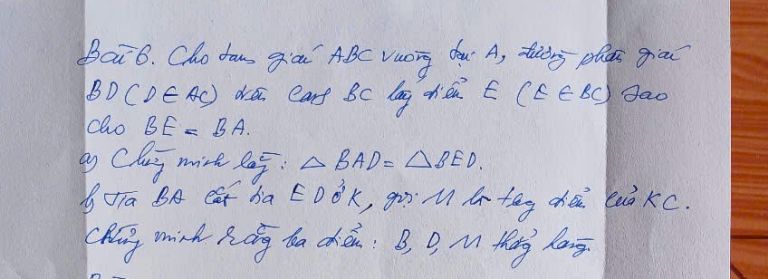 Bài 6. Cho tam giác ABC vuông tại A, đường phân giác
BD (D ∈ AC) trên cạnh BC lấy điểm E (E ∈ BC) sao
cho BE = BA.
a) Chứng minh rằng: △ BAD = △ BED.
b) Tia BA cắt tia ED ở K, gọi M là trung điểm của KC.
Chứng minh rằng ba điểm: B, D, M thẳng hàng.